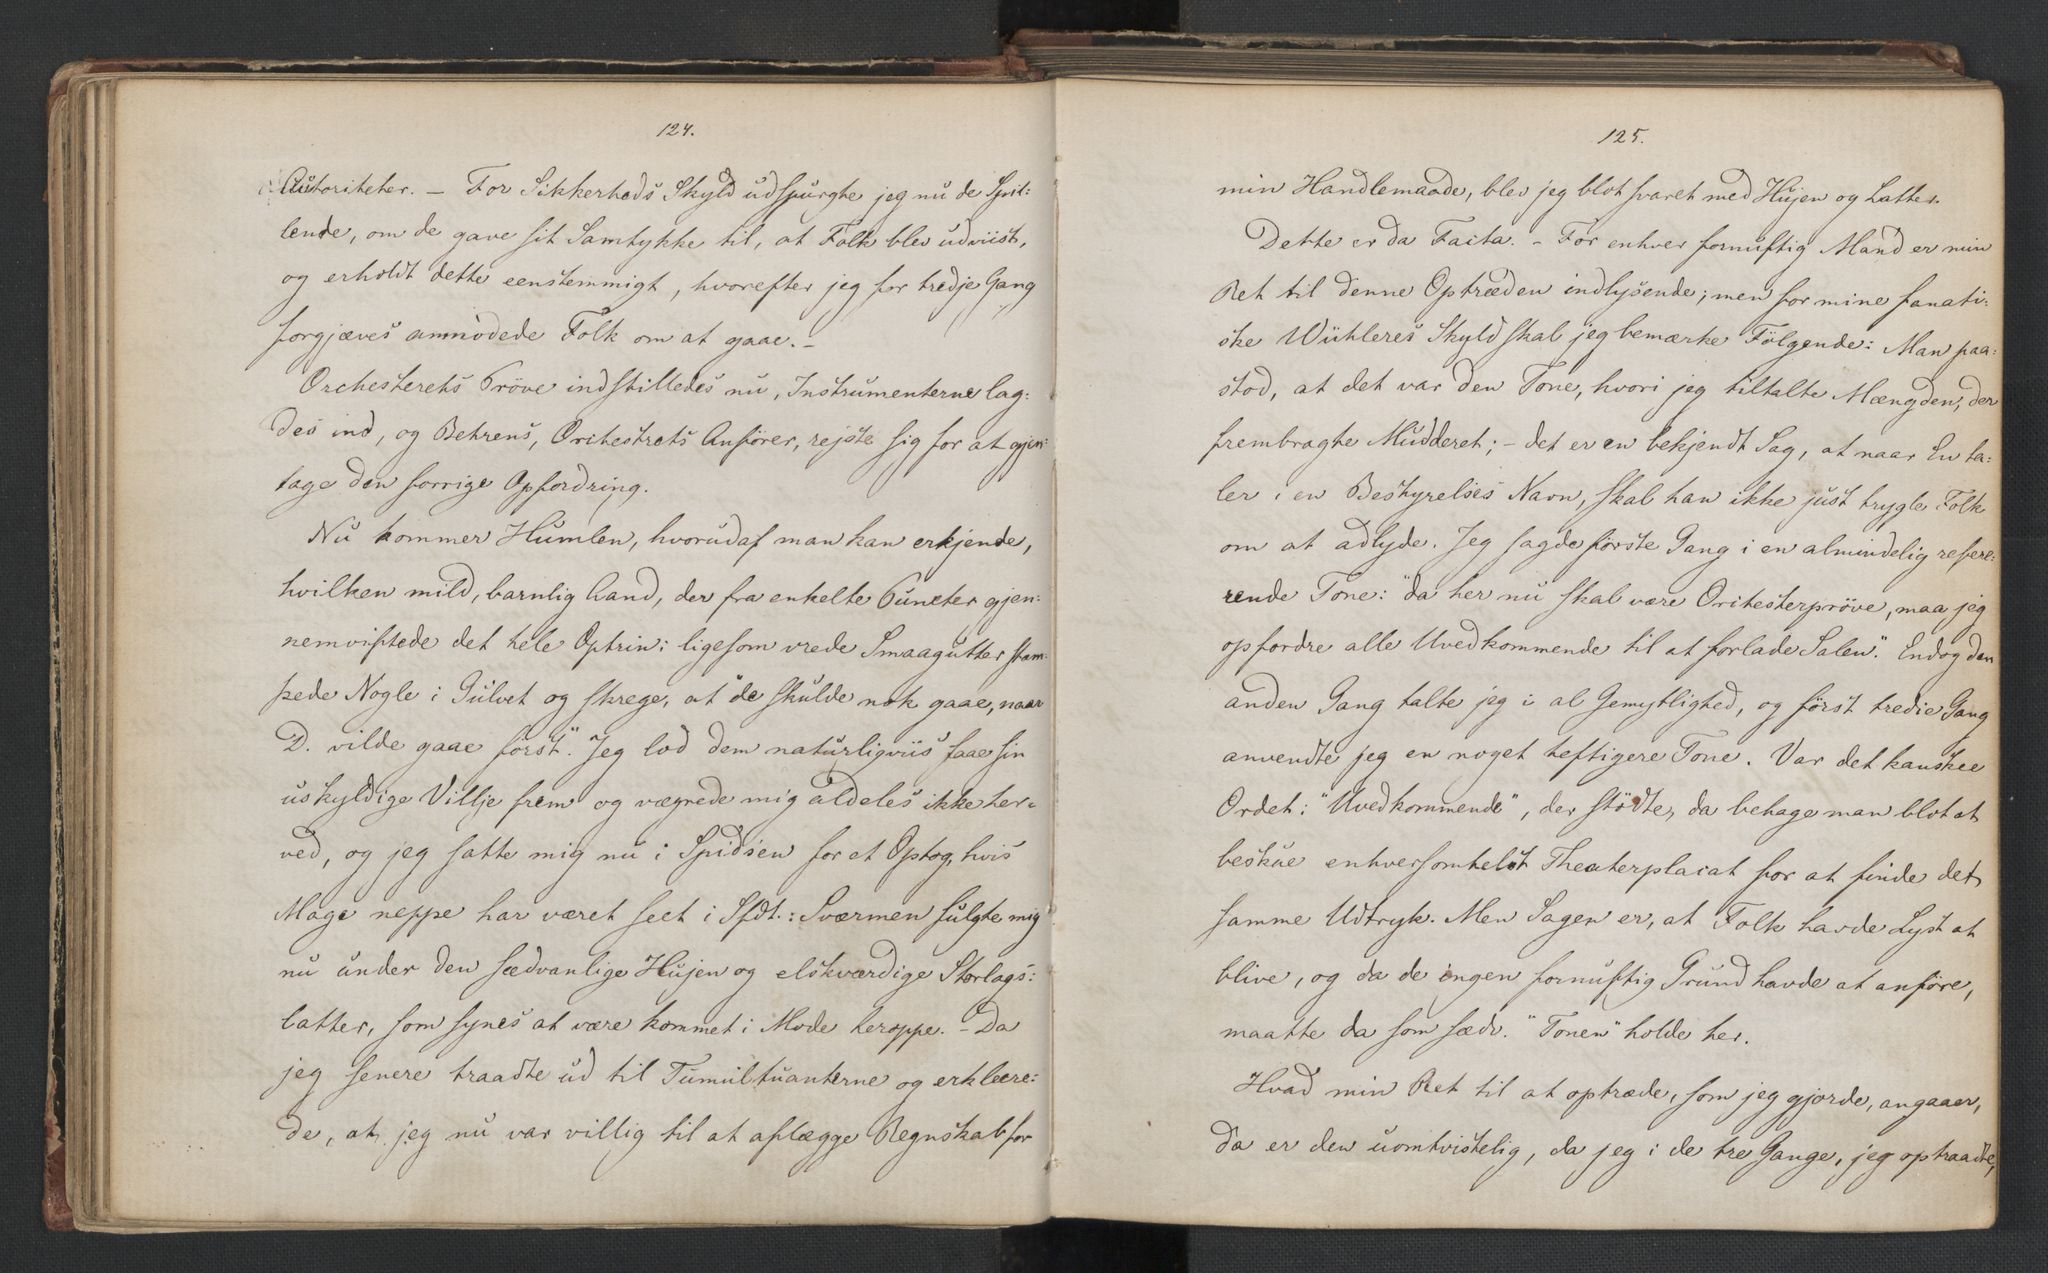 124.
Autoriteter. — For Sikkerheds Skyld udspurgte jeg nu de Spil:
lende, om de gave sit Samtykke til, at Folk blev udviist,
og erholdt dette eenstemmigt, hvorefter jeg for tredje Gang
forgjæves anmodede Folk om at gaae. —
Orchesterets Pröve indstilledes nu, Instrumenterne lag:
des ind, og Behrens, Orchestrets Anförer, rejste sig for at gjen:
tage den forrige Opfordring.
Nu kommer Humlen, hvorudaf man kan erkjende,
hvilken mild, barnlig Aand, der fra enkelte Puncter gjen:
nemviftede det hele Optrin: ligesom vrede Smaagutter stam:
pede Nogle i Gulvet og skrege, at "de skulde nok gaae, naar
D. vilde gaae först". Jeg lod dem naturligviis faae sin
uskyldige Villje frem og vægrede mig aldeles ikke her:
ved, og jeg satte mig nu i Spidsen for et Optog, hvis
Mage neppe har været seet i Sfdt.: Sværmen fulgte mig
nu under den sædvanlige Hujen og elskværdige Storlags:
latter, som synes at være kommet i Mode heroppe. — Da
jeg senere traadte ud til Tumultuanterne og erklære:
de, at jeg nu var villig til at aflægge Regnskab for
125.
min Handlemaade, blev jeg blot svaret med Hujen og Latter.
Dette er da Facta. — For enhver fornuftig Mand er min
Ret til denne Optræden indlysende; men for mine fanati:
ske Wühleres Skyld skal jeg bemærke Fölgende: Man paa:
stod, at det var den Tone, hvori jeg tiltalte Mængden, der
frembragte Mudderet; — det er en bekjendt Sag, at naar En ta:
ler i en Bestyrelses Navn, skal han ikke just trygle Folk
om at adlyde. Jeg sagde förste Gang i en almindelig refere:
rende Tone: "da her nu skal være Orchesterpröve, maa jeg
opfordre alle Uvedkommende til at forlade Salen". Endog den
anden Gang talte jeg i al Gemytlighed, og först tredie Gang
anvendte jeg en noget heftigere Tone. Var det kanskee
Ordet: "Uvedkommende", der stödte, da behage man blot at
beskue enhversomhelst Theaterplacat for at finde det
samme Udtryk. Men Sagen er, at Folk havde Lyst at
blive, og da de ingen fornuftig Grund havde at anföre,
maatte da som sædv. "Tonen" holde her.
Hvad min Ret til at optræde, som jeg gjorde, angaaer,
da er den uomtvistelig, da jeg i de tre Gange, jeg optraadte,